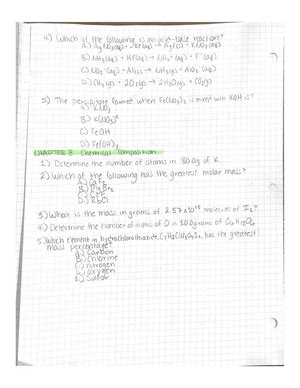 4.) Which of the following is an acid-base reaction?
A.) AgNO3(aq) + KCl(aq) → AgCl(s) + KNO3(aq)
B.) NH3(aq) + HF(aq) → NH4+(aq) + F-(aq)
C.) NO3-(aq) + Al(s) → NH3(g) + AlO2-(aq)
D.) CH4(g) + 2O2(g) → 2H2O(g) + CO2(g)
5.) The percipitate formed when Fe(NO3)2 is mixed with KOH is?
A.) KNO3
B.) K(NO3)2
C.) FeOH
D.) Fe(OH)2
CHAPTER 8 Chemical Composition
1.) Determine the number of atoms in 30.0g of K
2.) Which of the following has the greatest molar mass?
B.) MgBr2
D.) RbCl
3.) What is the mass in grams of 2.57x10 molecules of I2?
4.) Determine the number of atoms of O in 10.0 grams of C6H12O6
5.) Which element in hydrochlorothiazide, has the greatest
mass percentage?
A.) Carbon
B.) Chlorine
C.) Nitrogen
D.) Oxygen
E.) Sulfur